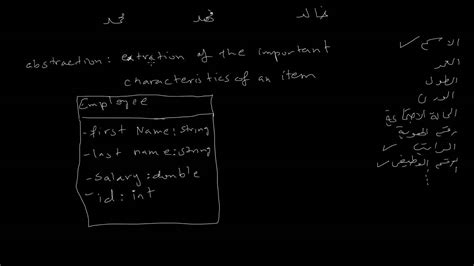 محمد فهد خالد
abstraction: extration of the important
characteristics of an item
Employee
-first Name: string
-last name: string
-salary: double
-id: int
الاسم ✓
العمر
الطول
الوزن
الحالة الاجتماعية
رقم الهوية
الراتب ✓
الرقم الوظيفي ✓
⋮